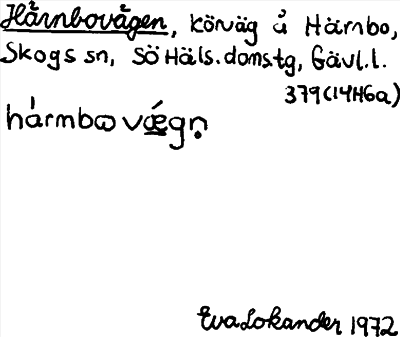 Härnbovägen, körväg å Härnbo,
Skogs sn, Sö Häls. doms.tg, Gävl.l.
379(14H6a)
hármbωvǽgṇ
Eva Lokander 1972